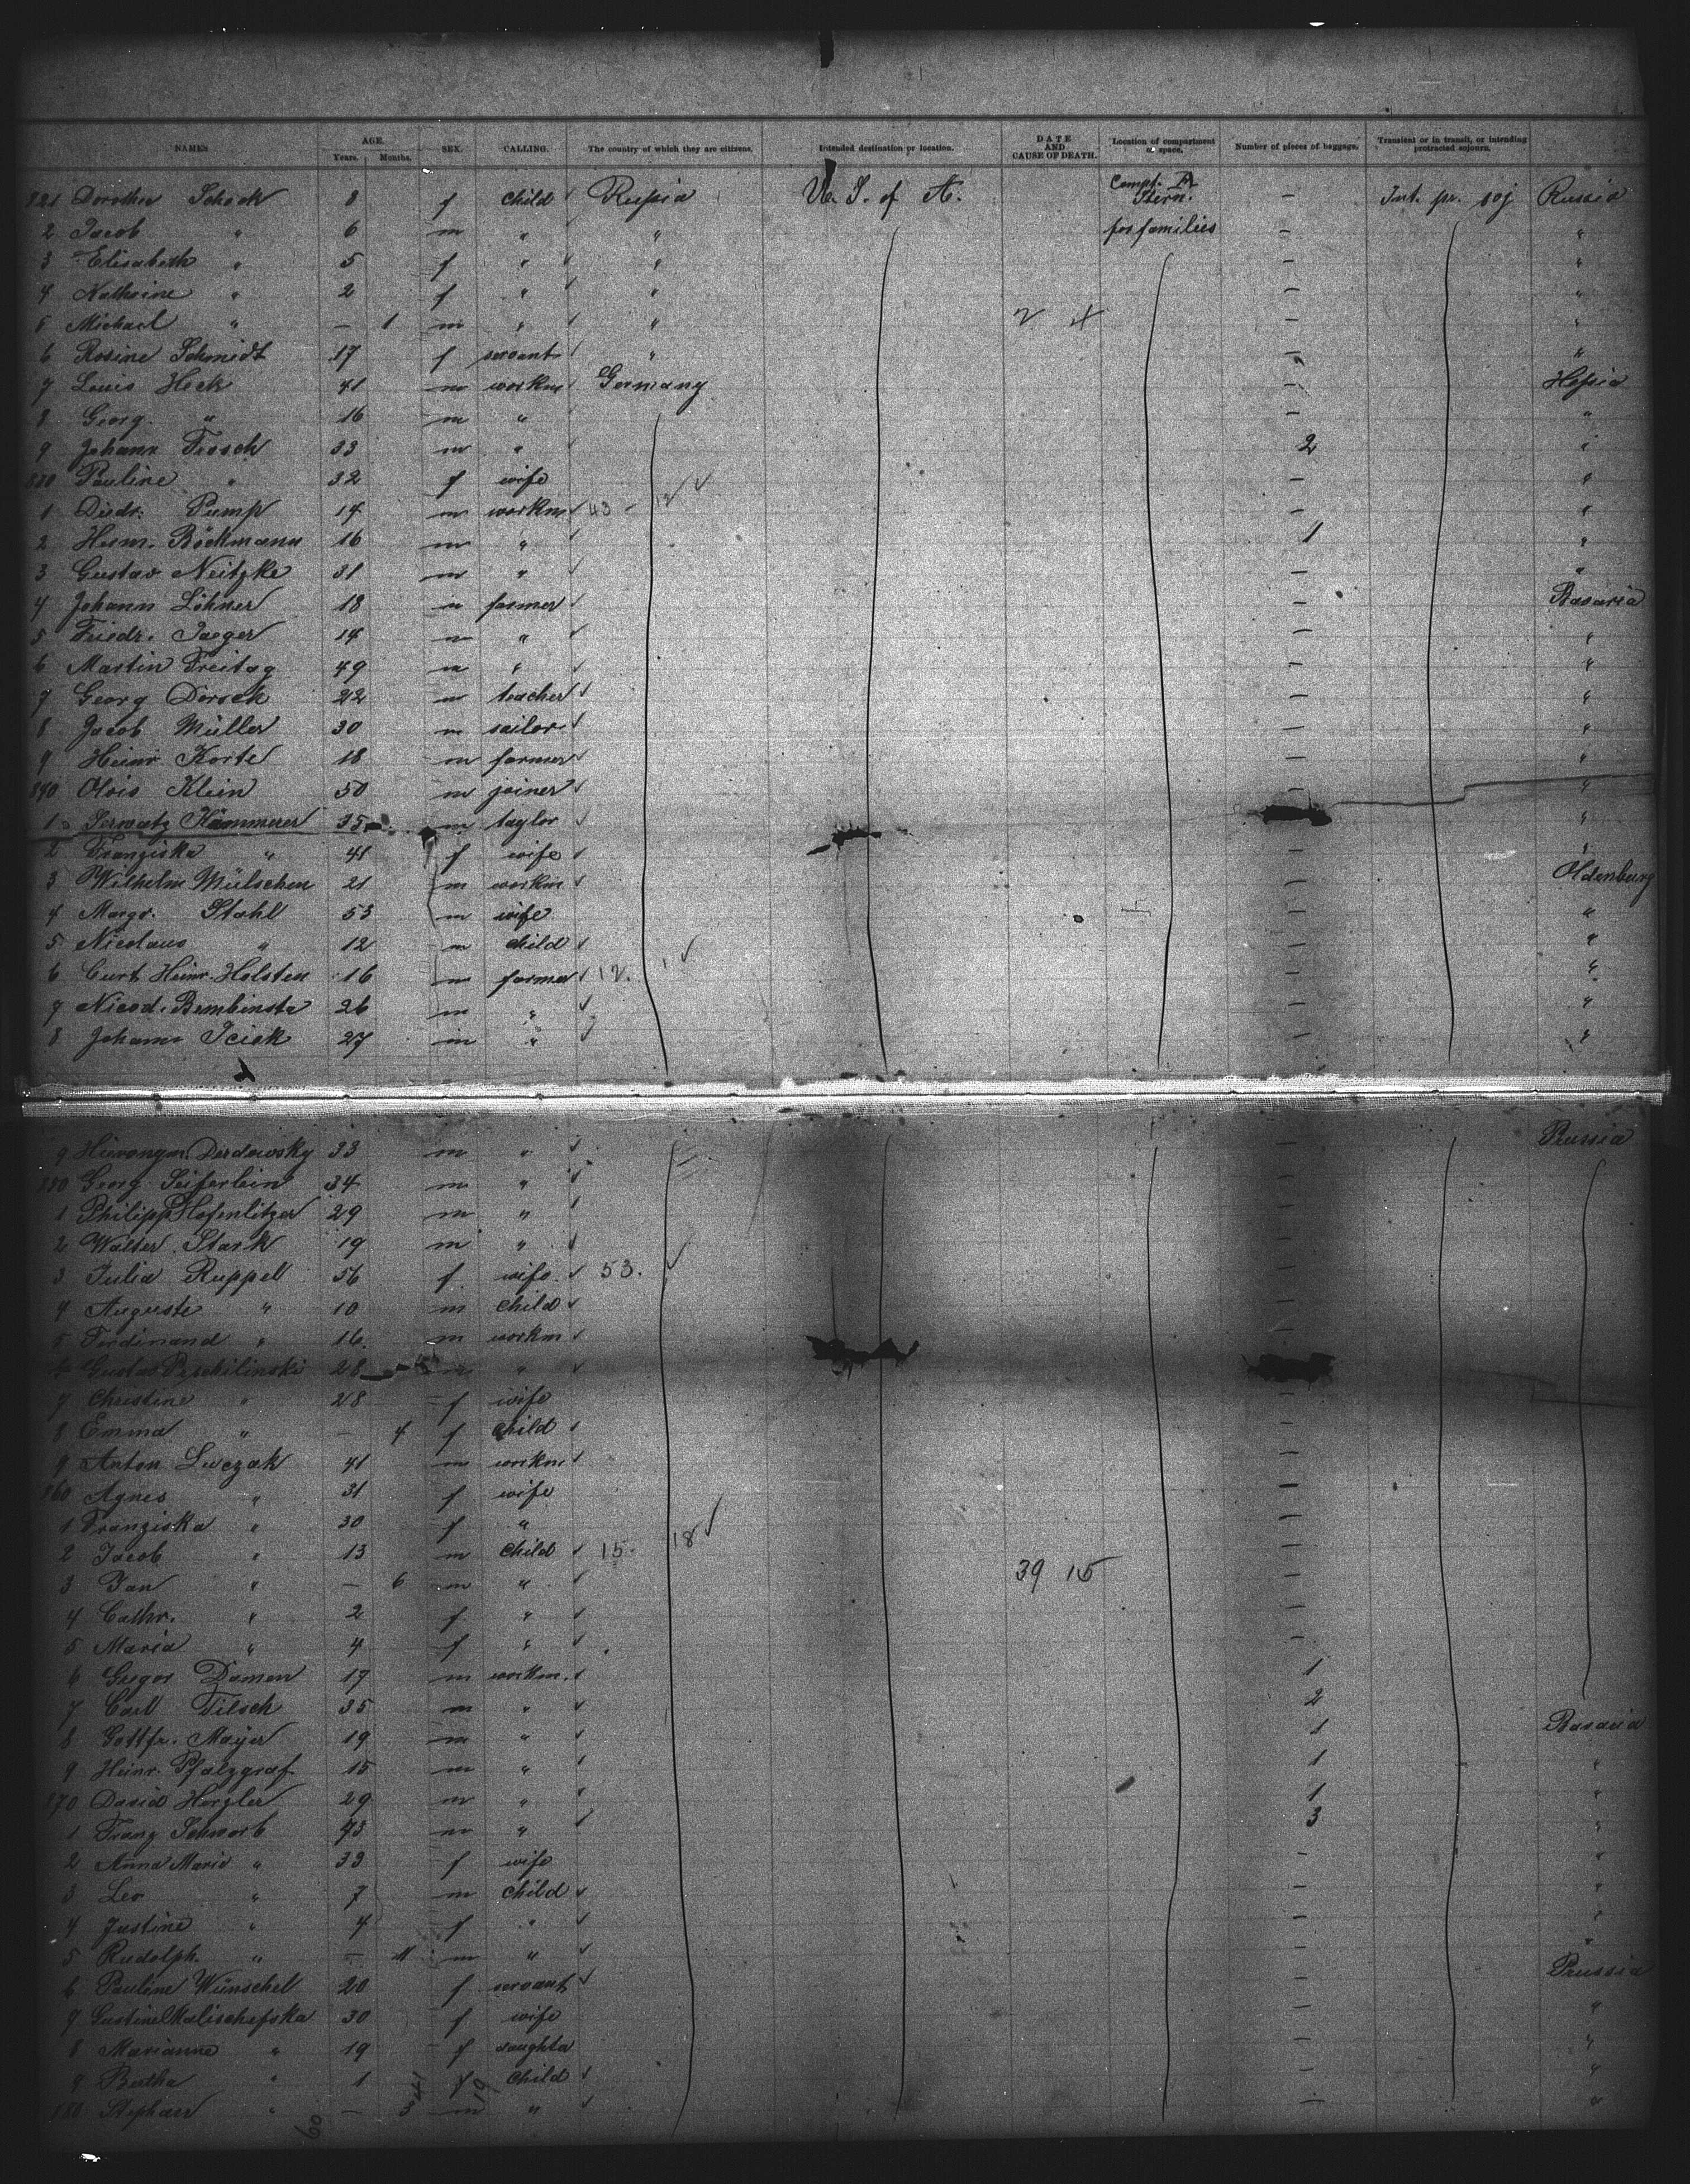 NAMES AGE. Years. Months. SEX. CALLING. The country of which they are citizens. Intended destination or location. DATE AND CAUSE OF DEATH. Location of compartment or space. Number of pieces of baggage. Transient or in transit, or intending protracted sojourn.
821 Dorothea Schock 8 f child Russia U. S. of A. Compt. A Stern. — Int. pr. soj Russia
2 Jacob " 6 m " " for families — "
3 Elisabeth " 5 f " " — "
4 Kathrine " 2 f " " — "
5 Michael " — 1 m " " 2 — "
6 Rosine Schmidt 17 f servant " — "
7 Louis Heck 41 m workm Germany — Hessia
8 Georg " 16 m " — "
9 Johann Frosch 33 m " 2 "
830 Pauline " 32 f wife — "
1 Diedr. Pump 14 m workm 43 — 12 — "
2 Herm. Böckmann 16 m " 1 "
3 Gustav Neitzke 31 m " — "
4 Johann Löhner 18 m farmer — Bavaria
5 Friedr. Jaeger 14 m " — "
6 Martin Freitag 49 m " — "
7 Georg Dorsch 22 m teacher — "
8 Jacob Müller 30 m sailor — "
9 Heinr. Korte 18 m farmer — "
840 Alois Klein 50 m joiner — "
1 Servatz Kämmerer 35 m taylor "
2 Franziska " 41 f wife — "
3 Wilhelm Mülschen 21 m workm — Oldenburg
4 Margr. Stahl 53 m wife — "
5 Nicolaus " 12 m child — "
6 Curt Heinr. Holsten 16 m farmer 12. — "
7 Nicod. Bembinsta 26 m " — "
8 Johann 27 m " — "
9 Hieronym. Derdowsky 33 m " — Prussia
850 Georg Seiferlein 34 m " —
1 Philipp Hofenlitzer 29 m " —
2 Walter Stark 19 m " —
3 Julia Ruppell 56 f wife 53. —
4 Auguste " 10 m child —
5 Ferdinand " 16 m workm —
6 Gustav Pzschilinski 28 m "
7 Christine " 28 f wife —
8 Emma " — 4 f child —
9 Anton Luczak 41 m workm —
860 Agnes " 31 f wife —
1 Franziska " 30 f " —
2 Jacob " 13 m child 15. 18 —
3 Jan " — 6 m " 39 15 —
4 Cathr. " 2 f " —
5 Maria " 4 f " —
6 Gregor Damen 17 m workm. 1
7 Carl Tilsch 35 m " 2
8 Gottfr. Mayer 19 m " 1 Bavaria
9 Heinr. Pfalzgraf 15 m " 1 "
870 David Hergler 29 m " 1 "
1 Franz Schwarb 43 m " 3 "
2 Anna Marie " 33 f wife — "
3 Leo " 7 m child — "
4 Justine " 4 f " — "
5 Rudolph " — 11 m " — "
6 Pauline Wünschel 20 f servant — Prussia
7 Justine Malischefska 30 f wife — "
8 Marianne " 19 f daughter — "
9 Bertha " 1 f child — "
880 Stephan " — m " — "
60 19